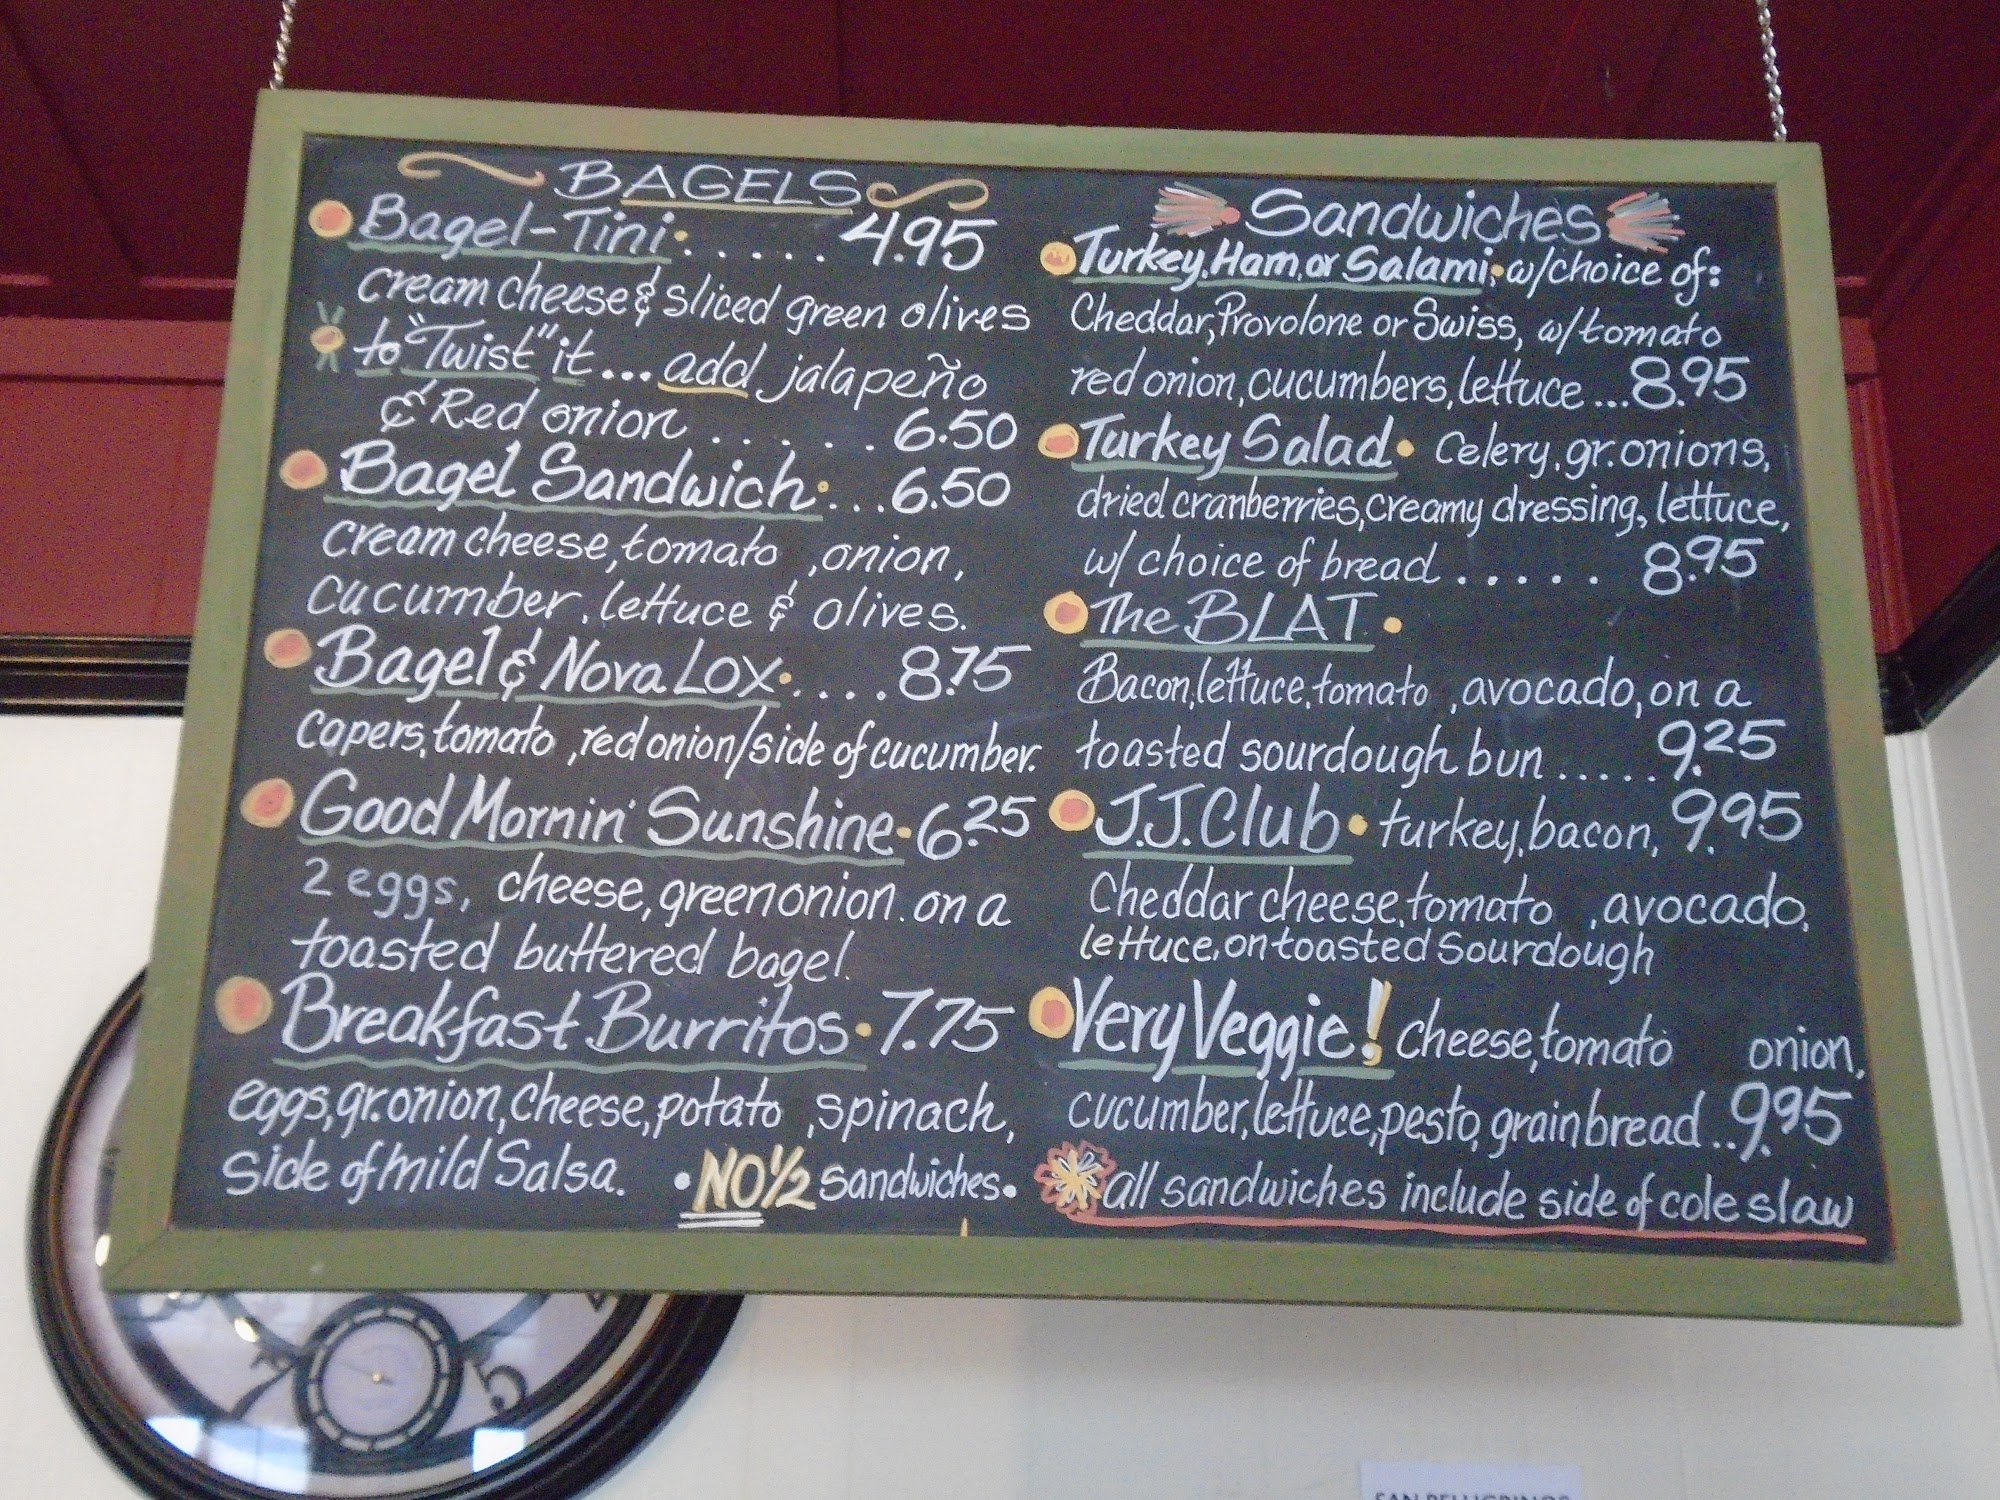 BAGELS
Bagel-Tini . . . . . 4.95
cream cheese & sliced green olives
to "Twist" it... add jalapeño
& Red onion . . . . . . 6.50
Bagel Sandwich . . . 6.50
cream cheese, tomato, onion,
cucumber, lettuce & olives.
Bagel & Nova Lox . . . . 8.75
capers, tomato, red onion/side of cucumber.
Good Mornin' Sunshine • 6.25
2 eggs, cheese, green onion. on a
toasted buttered bagel.
Breakfast Burritos • 7.75
eggs, gr. onion, cheese, potato, spinach,
side of mild Salsa.
• NO ½ sandwiches •
Sandwiches
Turkey, Ham, or Salami • w/choice of:
Cheddar, Provolone or Swiss, w/tomato
red onion, cucumbers, lettuce ... 8.95
Turkey Salad • Celery, gr. onions,
dried cranberries, creamy dressing, lettuce,
w/ choice of bread . . . . . 8.95
The BLAT •
Bacon, lettuce, tomato, avocado, on a
toasted sourdough bun ..... 9.25
J.J. Club • turkey, bacon, 9.95
Cheddar cheese, tomato, avocado,
lettuce, on toasted Sourdough
Very Veggie! cheese, tomato onion,
cucumber, lettuce, pesto, grain bread .. 9.95
all sandwiches include side of cole slaw
5
SAN PELLIGRINOS